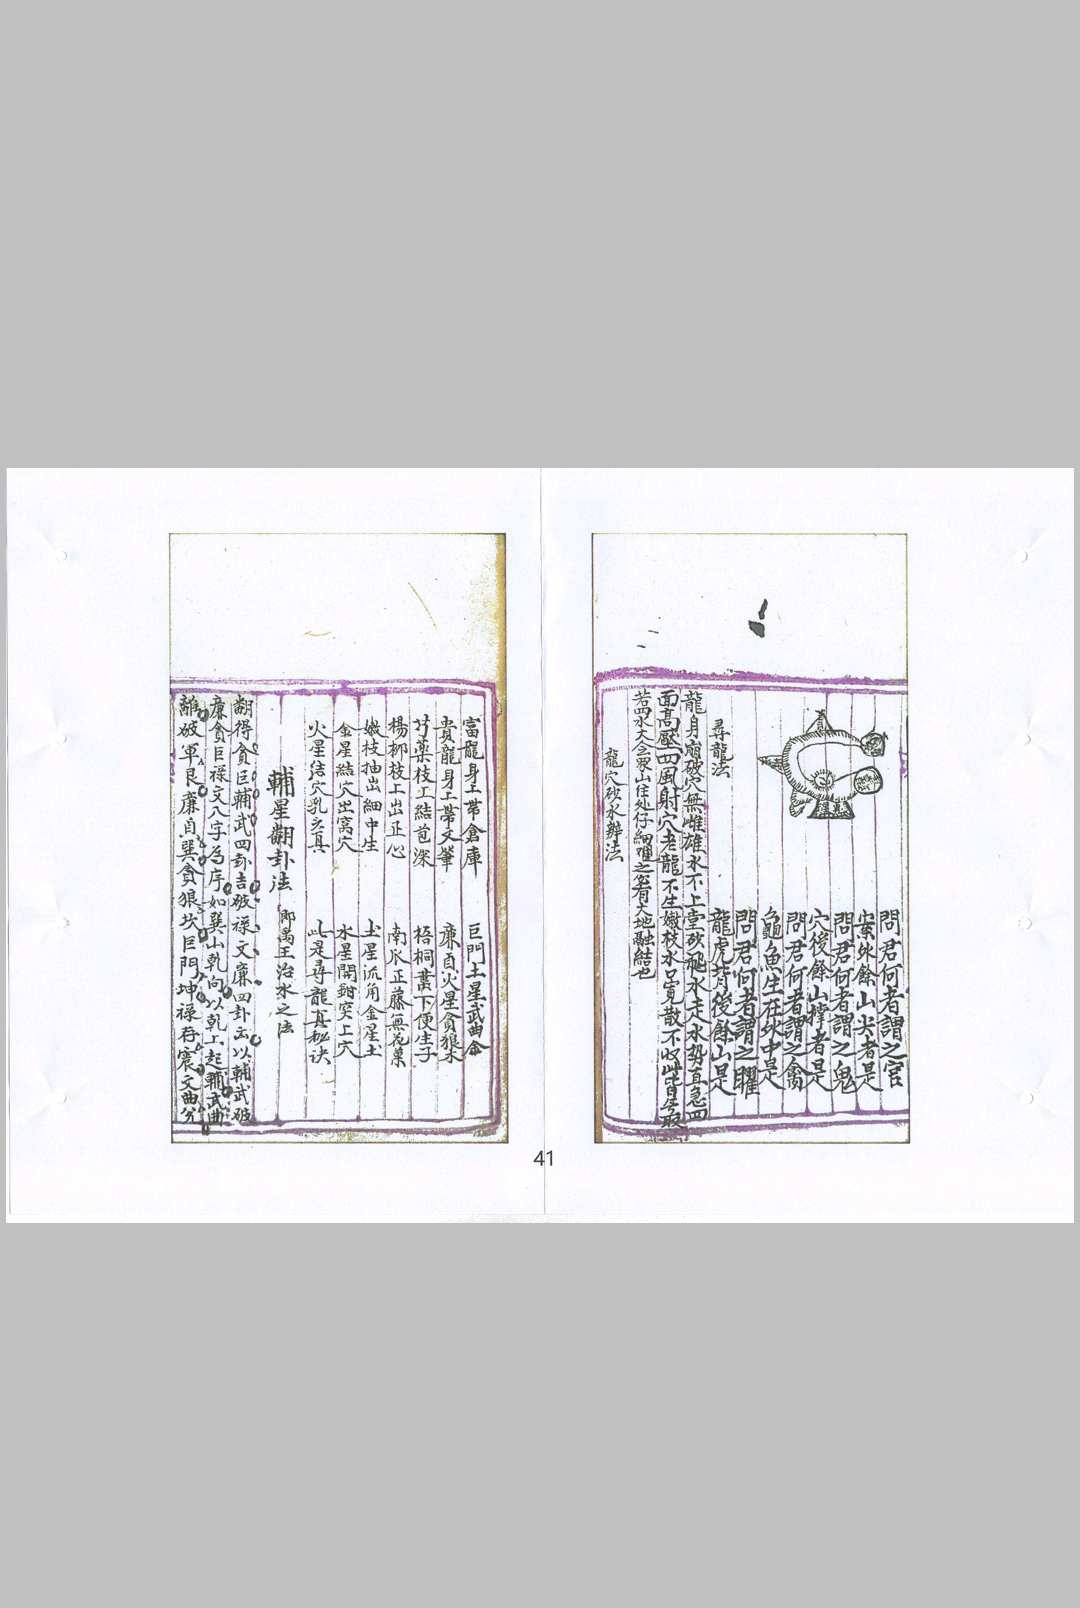 問君何者謂之官
案外餘山尖者是
問君何者謂之鬼
穴後餘山撑者是
問君何者謂之禽
龜魚生在水中是
問君何者謂之曜
龍虎背後餘山是
尋龍法
龍身崩破穴無雌雄水不上堂砂飛水走水势直急四
面高壓四風射穴老龍不生嫩枝水口寬散不收此皆是最
若四水大會衆山住处仔細
之必有大地融結也
龍穴砂水辨法
富龍身上带倉庫 巨門土星武曲金
貴龍身上带文筆 廉貞火星貪狼木
芍藥枝工結苞深 梧桐葉下便生子
楊柳枝上出正心 南瓜正藤無花菓
嫩枝抽出細中生 土星流角金星土
金星結穴出窩穴 水星開鉗突上穴
火星结穴乳头真 此是尋龍真秘诀
輔星翻卦法 即禹王治水之法
翻得貪巨輔武四卦吉破禄文廉四卦凶以輔武破
廉貪巨禄文八字為序如巽山乾向以乾上起輔武曲
離破軍艮廉貞巽貪狼坎巨門坤禄存震文曲分
41